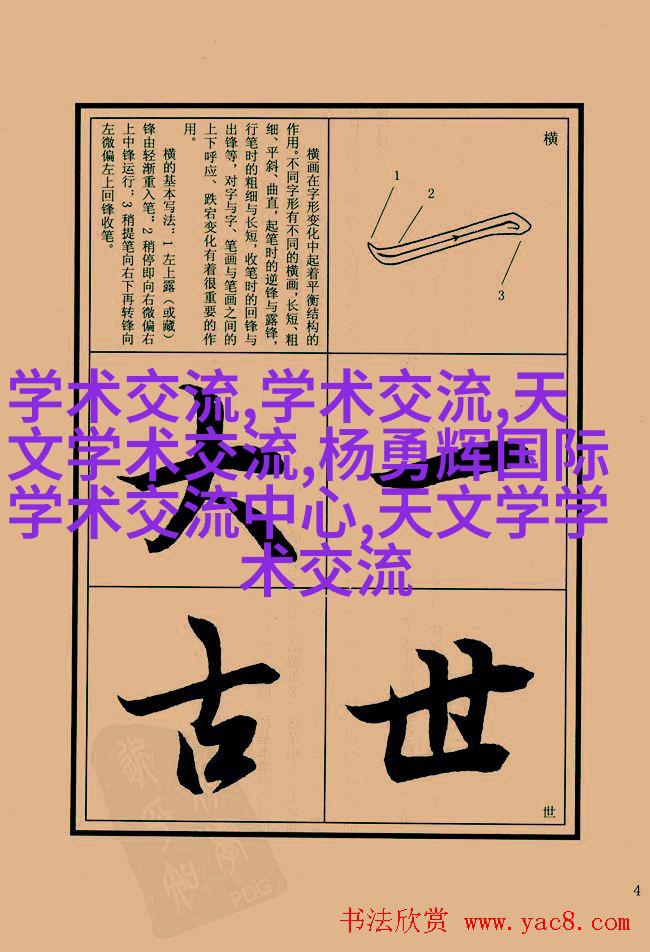 横
1
2
3
横画在字形变化中起着平衡结构的
作用。不同字形有不同的横画，长短、粗
细、平斜、曲直，起笔时的逆锋与露锋，
行笔时的粗细与长短，收笔时的回锋与
出锋等，对字与字、笔画与笔画之间的
上下呼应、跌宕变化有着很重要的作
用。
横的基本写法：1 左上露（或藏）
锋由轻渐重入笔；2 稍停即向右微偏右
上中锋运行；3 稍提笔向右下再转锋向
左微偏左上回锋收笔。
学术交流,学术交流,天
文学术交流,杨勇辉国际
学术交流中心,天文学学
术交流
一
大
世
古
世
PDG
4
书法欣赏 www.yac8.com